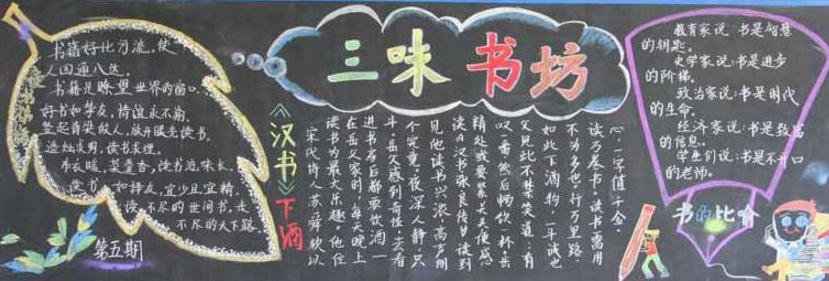 三味书坊
书籍好比河流,使
人四通八达。
书籍是瞭望世界的窗口。
好书如挚友,情谊永不渝。
竖起脊梁做人,放开眼光读书。
造烛求明,读书求理。
布衣暖,菜羹香,读书滋味长。
读书如择友,宜少且宜精。
读不尽的世间书,走
不尽的天下路。
第五期
《汉书》下酒
宋代诗人苏舜钦以
读书为最大乐趣。他住
在岳父家时,每天晚上
进书房后都要饮酒一
斗,岳父感到奇怪,去看
个究竟。夜深人静,只
见他读书兴浓,高声朗
读《汉书张良传》,读到
精处或要紧
叹一番,然后畅饮一杯,岳
父见此,不禁笑道:有
如此下酒物,一斗诚也
不为多也。行万里路,
读万卷书。读书需用
心,一字值千金。
教育家说:书是智慧
的钥匙。
史学家说:书是进步
的阶梯。
政治家说:书是时代
的生命。
经济家说:书是致富
的信息。
学生们说:书是不开口
的老师。
书的比喻